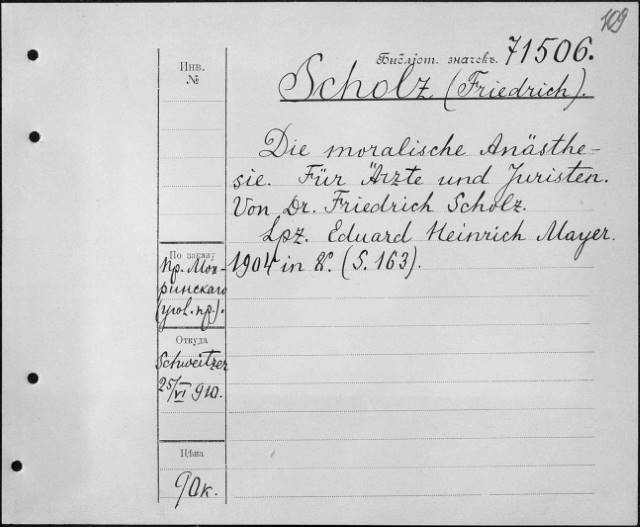 109
Библіот. значекъ. 71506.
Инв.
№
Scholz (Friedrich).
Die moralische Anästhe-
sie. Für Ärzte und Juristen.
Von Dr. Friedrich Scholz.
Lpz. Eduard Heinrich Mayer.
1904 in 8°. (S. 163).
По заказу
пр. Мок-
ринскаго
(угол. пр.).
Откуда
Schweitzer
25/VI 910.
Цѣна
90к.